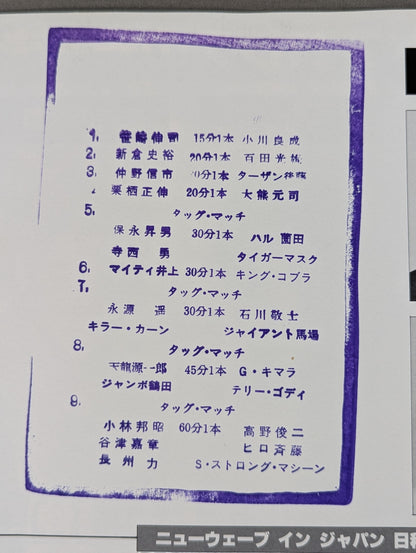 1. 笹崎伸司 15分1本 小川良成
2. 新倉史裕 20分1本 百田光雄
3. 仲野信市 20分1本 ターザン後藤
4 栗栖正伸 20分1本 大熊元司
5. タッグ・マッチ
保永昇男 30分1本 ハル薗田
寺西 勇 タイガーマスク
6. マイティ井上 30分1本 キング・コブラ
7. タッグ・マッチ
永源 遥 30分1本 石川敬士
キラー・カーン ジャイアント馬場
8. タッグ・マッチ
天龍源一郎 45分1本 G・キマラ
ジャンボ鶴田 テリー・ゴディ
9. タッグ・マッチ
小林邦昭 60分1本 高野俊二
谷津嘉章 ヒロ斉藤
長州 力 S・ストロング・マシーン
ニューウェーブ イン ジャパン 日